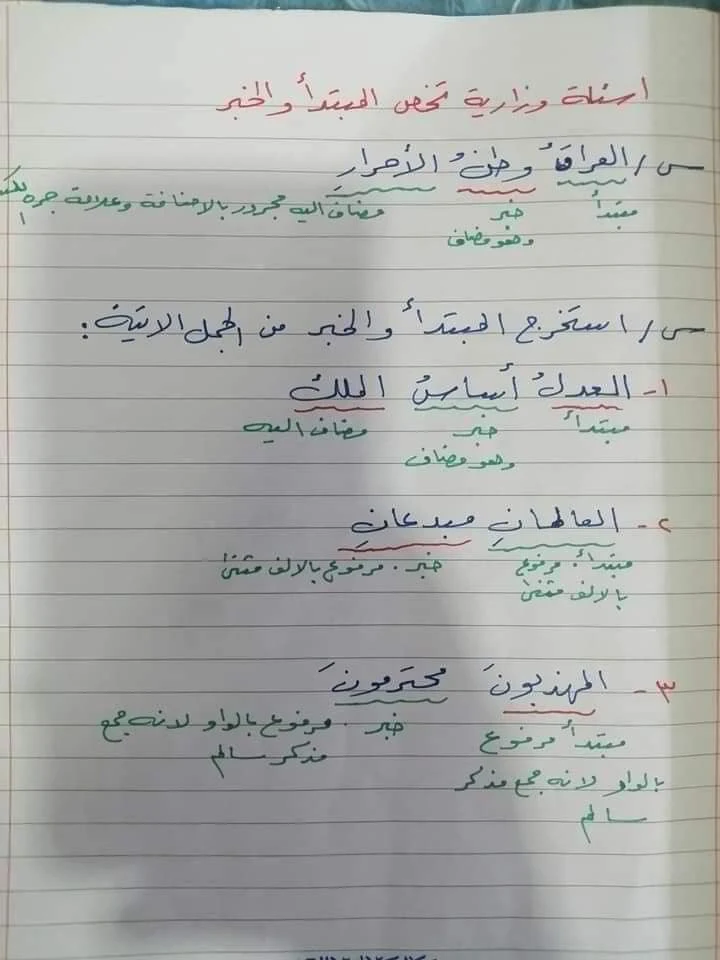 اسئلة وزارية تخص المبتدأ والخبر
س/ العراقُ وطنُ الأحرارِ
مبتدأ خبر مضاف اليه مجرور بالاضافة وعلامة جره
وهو مضاف
س/ استخرج المبتدأ والخبر من الجمل الاتية:
١- العدلُ أساسُ الملك
مبتدأ خبر مضاف اليه
وهو مضاف
٢- العالمانِ مبدعانِ
مبتدأ. مرفوع خبر. مرفوع بالالف مثنى
بالالف مثنى
٣- المهذبونَ محترمونَ
مبتدأ مرفوع خبر. مرفوع بالواو لانه جمع
مذكر سالم
بالواو لانه جمع مذكر
سالم